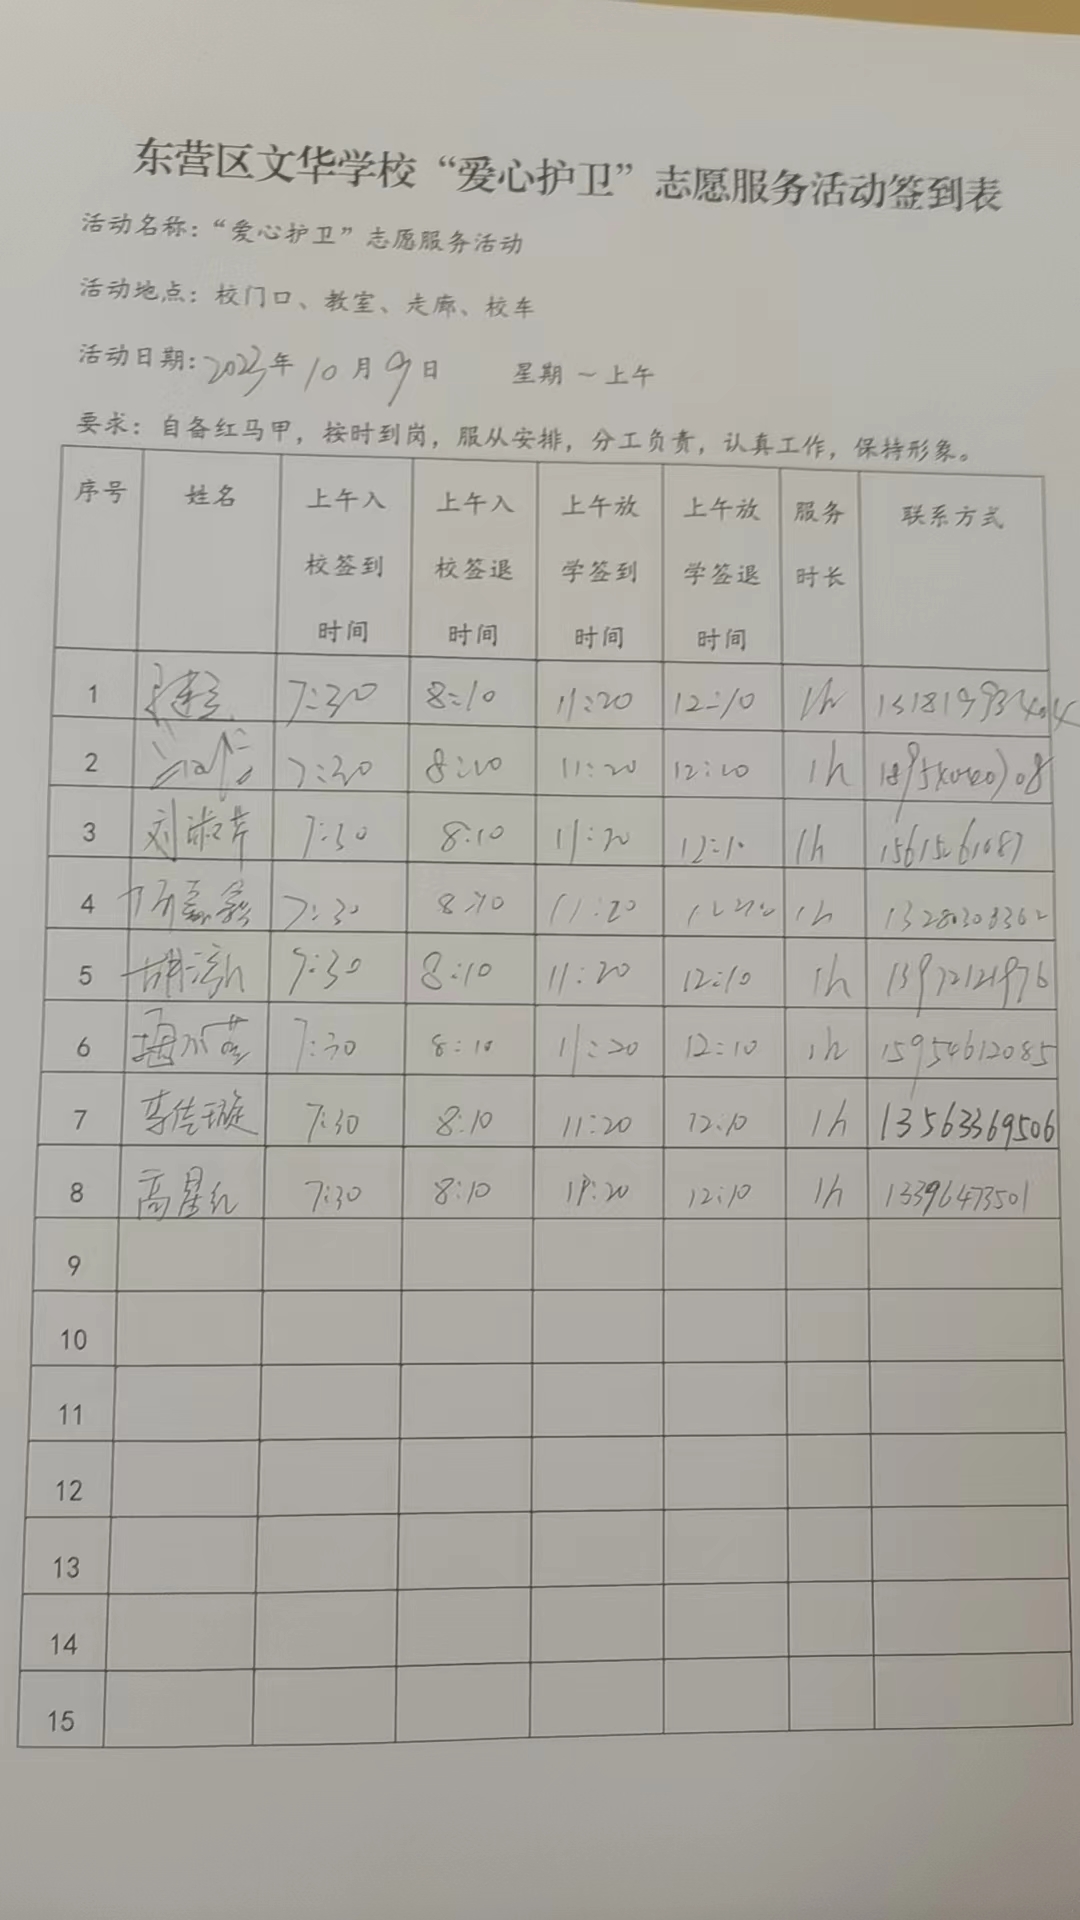 东营区文华学校“爱心护卫”志愿服务活动签到表
活动名称：“爱心护卫”志愿服务活动
活动地点：校门口、教室、走廊、校车
活动日期：2023年10月9日 星期一上午
要求：自备红马甲，按时到岗，服从安排，分工负责，认真工作，保持形象。
序号 姓名 上午入校签到时间 上午入校签退时间 上午放学签到时间 上午放学签退时间 服务时长 联系方式
1 7:30 8:10 11:20 12:10 1h
2 7:30 8:10 11:20 12:10 1h
3 刘淑芹 7:30 8:10 11:20 12:10 1h 15615261087
4 7:30 8:10 11:20 1h 13280308362
5 7:30 8:10 11:20 12:10 1h 13972121976
6 7:30 8:10 11:20 12:10 1h 15954612085
7 李佳璇 7:30 8:10 11:20 12:10 1h 13563369506
8 高星红 7:30 8:10 11:20 12:10 1h 13396473501
9
10
11
12
13
14
15